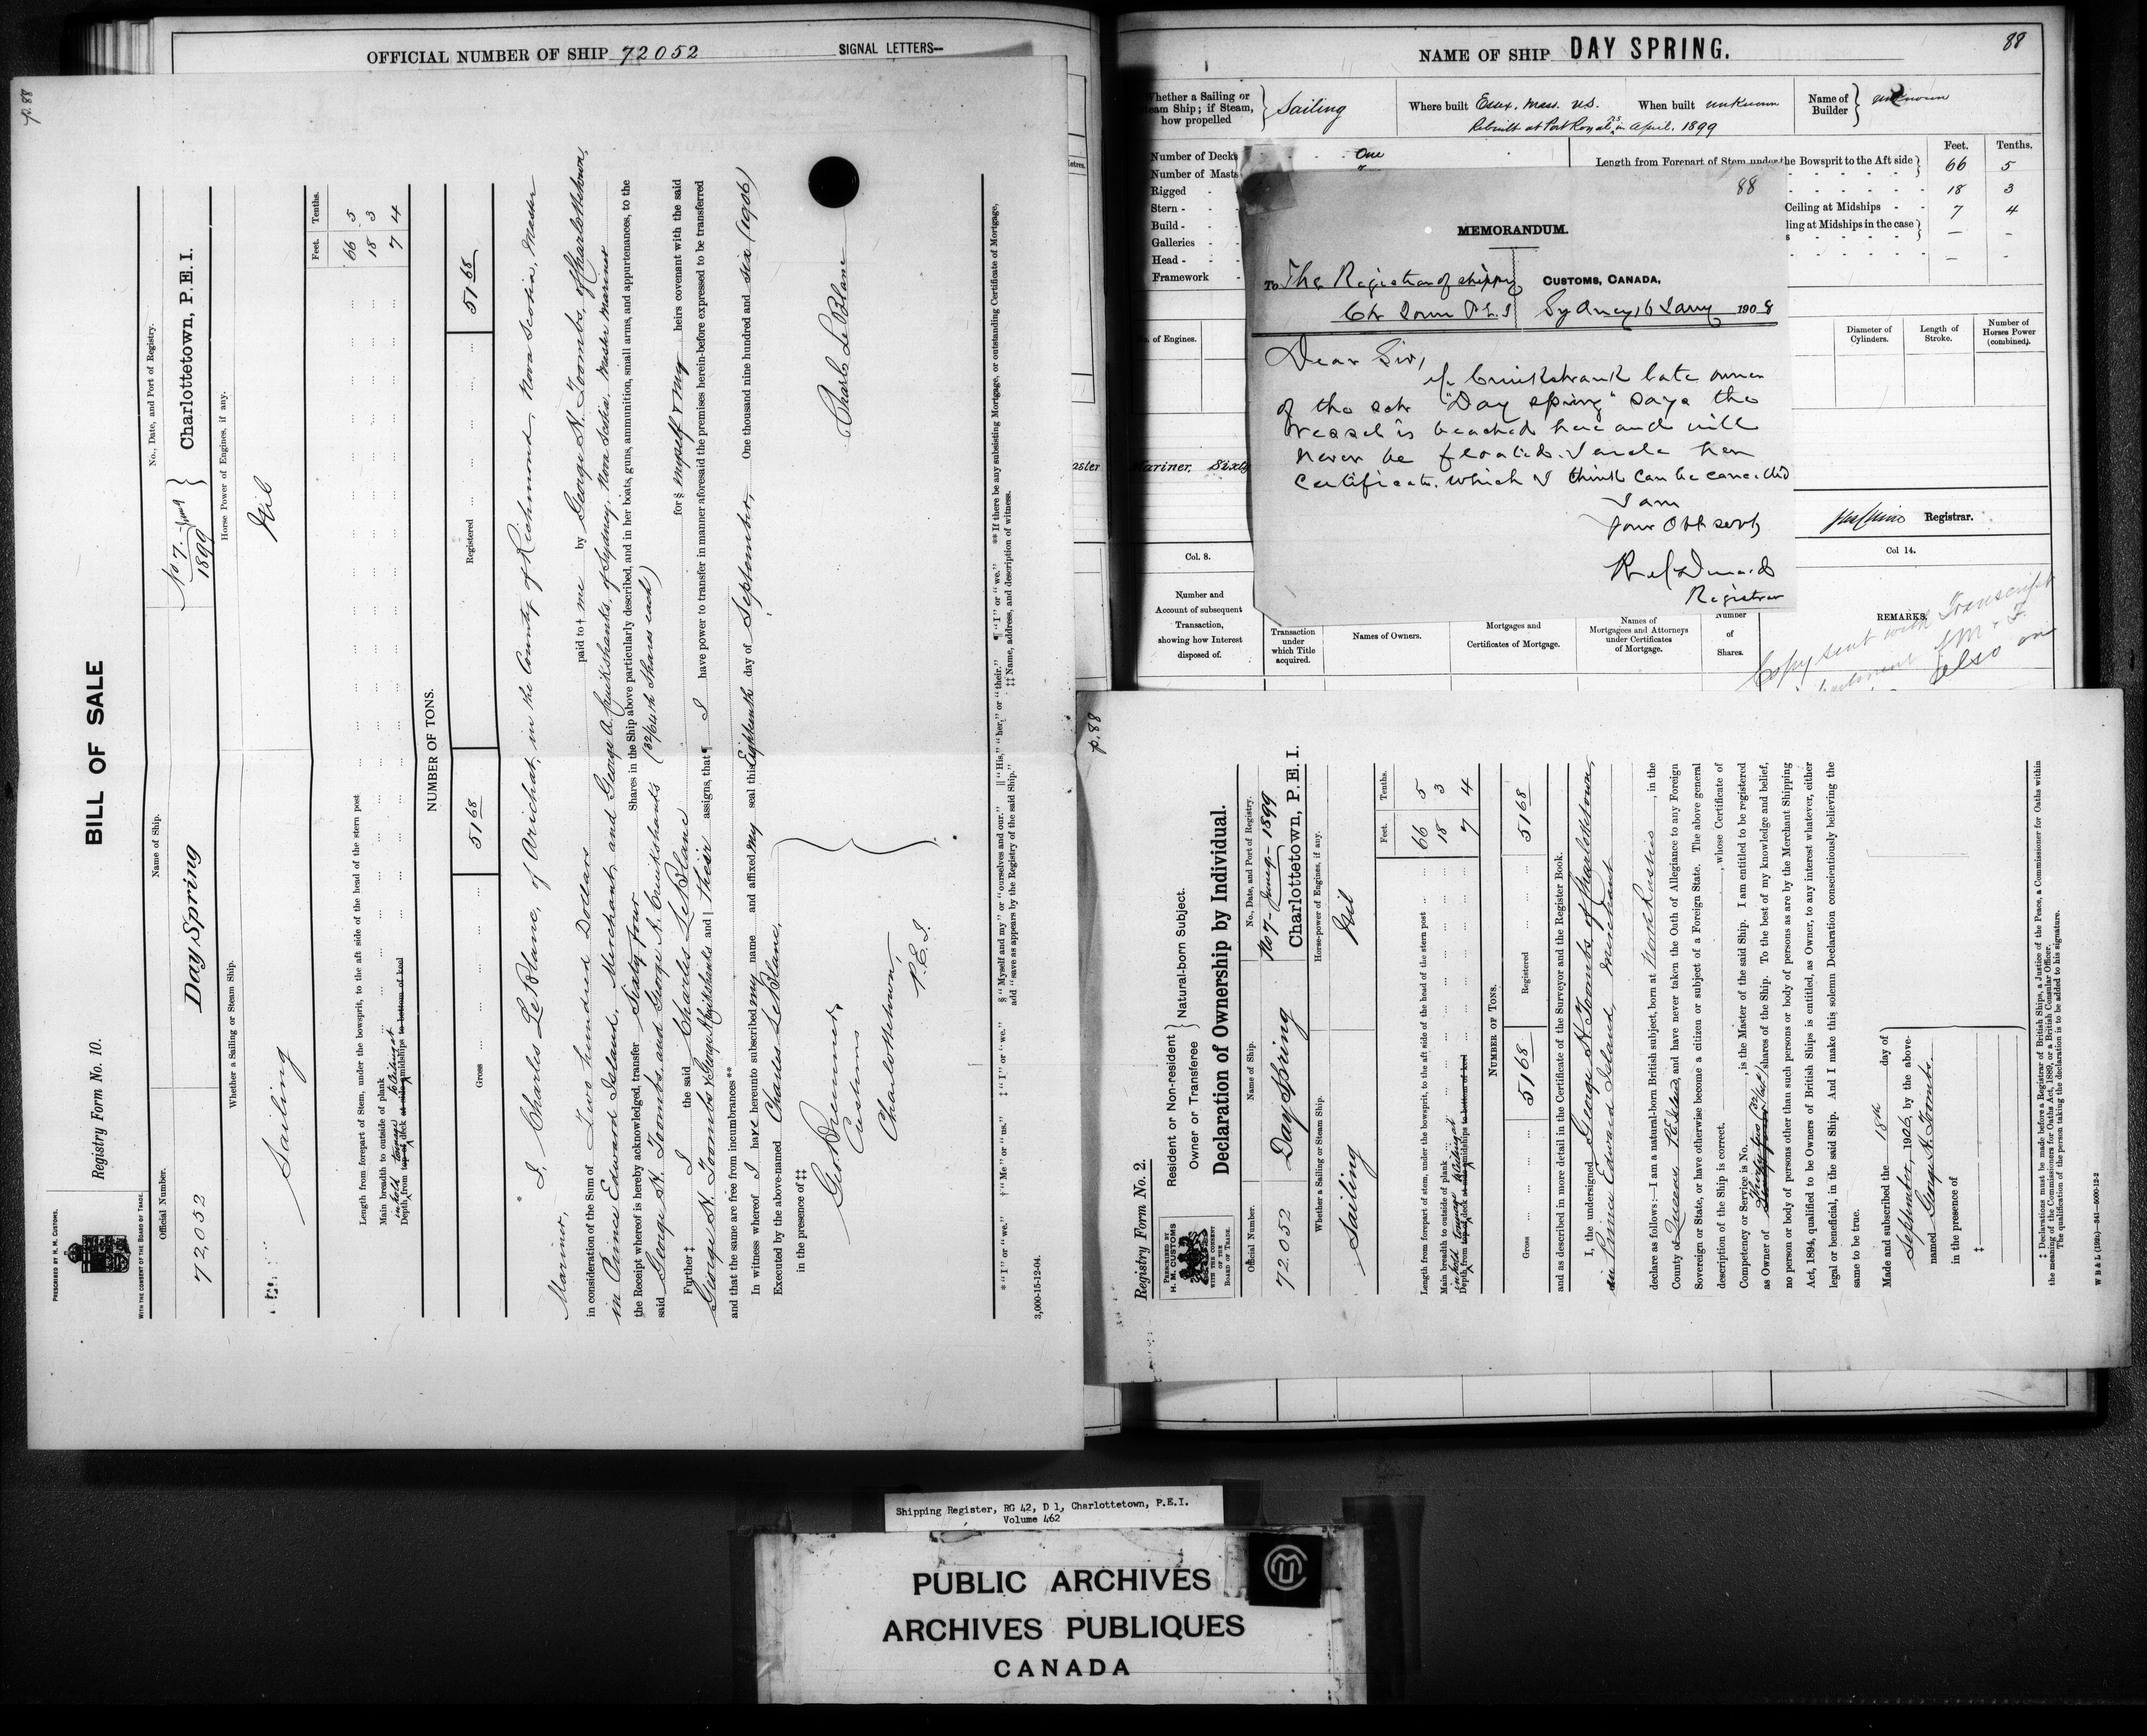 OFFICIAL NUMBER OF SHIP 72052
SIGNAL LETTERS—
p. 88
PRESCRIBED BY H. M. CUSTOMS.
WITH THE CONSENT OF THE BOARD OF TRADE.
Registry Form No. 10.
BILL OF SALE
Official Number.
Name of Ship.
No., Date, and Port of Registry.
72,052
Day Spring
No 7.
1899
Charlottetown, P.E.I.
Whether a Sailing or Steam Ship.
Horse Power of Engines, if any.
Sailing
Nil
Feet. Tenths.
Length from forepart of Stem, under the bowsprit, to the aft side of the head of the stern post 66 5
Main breadth to outside of plank 18 3
in hold tonnage to Ceiling at
Depth from top of deck at side amidships to bottom of keel 7 4
NUMBER OF TONS.
Gross 51 68
Registered 51 68
* I, Charles Le Blanc, of Arichat, in the County of Richmond, Nova Scotia, Master
Mariner,
in consideration of the Sum of Two hundred Dollars paid to † me by George N. Toombs, of Charlottetown,
in Prince Edward Island, Merchant, and George A. Cruikshanks, of Sydney, Nova Scotia, Master Mariner
the Receipt whereof is hereby acknowledged, transfer Sixty four Shares in the Ship above particularly described, and in her boats, guns, ammunition, small arms, and appurtenances, to the
said George N. Toombs, and George A. Cruikshanks (32/64th Shares each)
Further ‡ I the said Charles Le Blanc for § myself & my heirs covenant with the said
George N. Toombs & George A. Cruikshanks and || their assigns, that ¶ I have power to transfer in manner aforesaid the premises herein-before expressed to be transferred
and that the same are free from incumbrances **
In witness whereof I have hereunto subscribed my name and affixed my seal this Eighteenth day of September, One thousand nine hundred and six (1906)
Executed by the above-named Charles Le Blanc,
in the presence of ‡‡
Charls Le Blanc
Customs
Charlottetown,
P.E.I.
* "I" or "we." † "Me" or "us." ‡ "I" or "we." § "Myself and my" or "ourselves and our." || "His," "her," or "their." ¶ "I" or "we." ** If there be any subsisting Mortgage, or outstanding Certificate of Mortgage,
add "save as appears by the Registry of the said Ship." ‡‡ Name, address, and description of witness.
3,000-15-12-04.
NAME OF SHIP DAY SPRING.
88
Whether a Sailing or
Steam Ship; if Steam,
how propelled
Sailing
Where built Essex, Mass. U.S.
When built unknown
Name of
Builder
unknown
Rebuilt at Port Royal, N.S. in April, 1899
Number of Decks One
Number of Masts
Rigged
Stern
Build
Galleries
Head
Framework
Feet. Tenths.
Length from Forepart of Stem under the Bowsprit to the Aft side 66 5
18 3
Ceiling at Midships 7 4
ling at Midships in the case — -
— -
88
MEMORANDUM.
To The Registrar of Shipping
Ch Town P.E.I
CUSTOMS, CANADA,
Sydney, 16 Jany 1908
Dear Sir,
Cruikshank late owner
of the sch "Day Spring" says the
vessel is beached here and will
never be floated. I enclose her
Certificate. which I think can be cancelled
I am
your Obt servt
Registrar
of Engines.
Diameter of
Cylinders.
Length of
Stroke.
Number of
Horses Power
(combined).
aster
Mariner, Sixty
Registrar.
Col. 8.
Col 14.
Number and
Account of subsequent
Transaction,
showing how Interest
disposed of.
Transaction
under
which Title
acquired.
Names of Owners.
Mortgages and
Certificates of Mortgage.
Names of
Mortgagees and Attorneys
under Certificates
of Mortgage.
Number
of
Shares.
REMARKS.
Copy sent with Transcript
also on
p. 88
Registry Form No. 2.
PRESCRIBED BY
H. M. CUSTOMS
WITH THE CONSENT
OF THE
BOARD OF TRADE.
Resident or Non-resident
Owner or Transferee
Natural-born Subject.
Declaration of Ownership by Individual.
Official Number.
Name of Ship.
No., Date, and Port of Registry.
72052
Day Spring
No 7- June 9- 1899
Charlottetown, P.E.I.
Whether a Sailing or Steam Ship.
Horse-power of Engines, if any.
Sailing
Nil
Feet. Tenths.
Length from forepart of stem, under the bowsprit, to the aft side of the head of the stern post 66 5
Main breadth to outside of plank 18 3
in hold tonnage to Ceiling at
Depth from top of deck at side amidships to bottom of keel 7 4
NUMBER OF TONS.
Gross 51 68
Registered 51 68
and as described in more detail in the Certificate of the Surveyor and the Register Book.
I, the undersigned George N. Toombs of Charlottetown,
in Prince Edward Island, Merchant
declare as follows:—I am a natural-born British subject, born at North Rustico, in the
County of Queens P.E. Island, and have never taken the Oath of Allegiance to any Foreign
Sovereign or State, or have otherwise become a citizen or subject of a Foreign State. The above general
description of the Ship is correct. , whose Certificate of
Competency or Service is No. , is the Master of the said Ship. I am entitled to be registered
as Owner of Thirty two (32) shares of the Ship. To the best of my knowledge and belief,
no person or body of persons other than such persons or body of persons as are by the Merchant Shipping
Act, 1894, qualified to be Owners of British Ships is entitled, as Owner, to any interest whatever, either
legal or beneficial, in the said Ship. And I make this solemn Declaration conscientiously believing the
same to be true.
Made and subscribed the 18th day of
September, 1906, by the above-
named George N. Toombs.
in the presence of
‡
‡ Declarations must be made before a Registrar of British Ships, a Justice of the Peace, a Commissioner for Oaths within
the meaning of the Commissioners for Oaths Act, 1889, or a British Consular Officer.
The qualification of the person taking the declaration is to be added to his signature.
Shipping Register, RG 42, D 1, Charlottetown, P.E.I.
Volume 462
PUBLIC ARCHIVES
ARCHIVES PUBLIQUES
CANADA